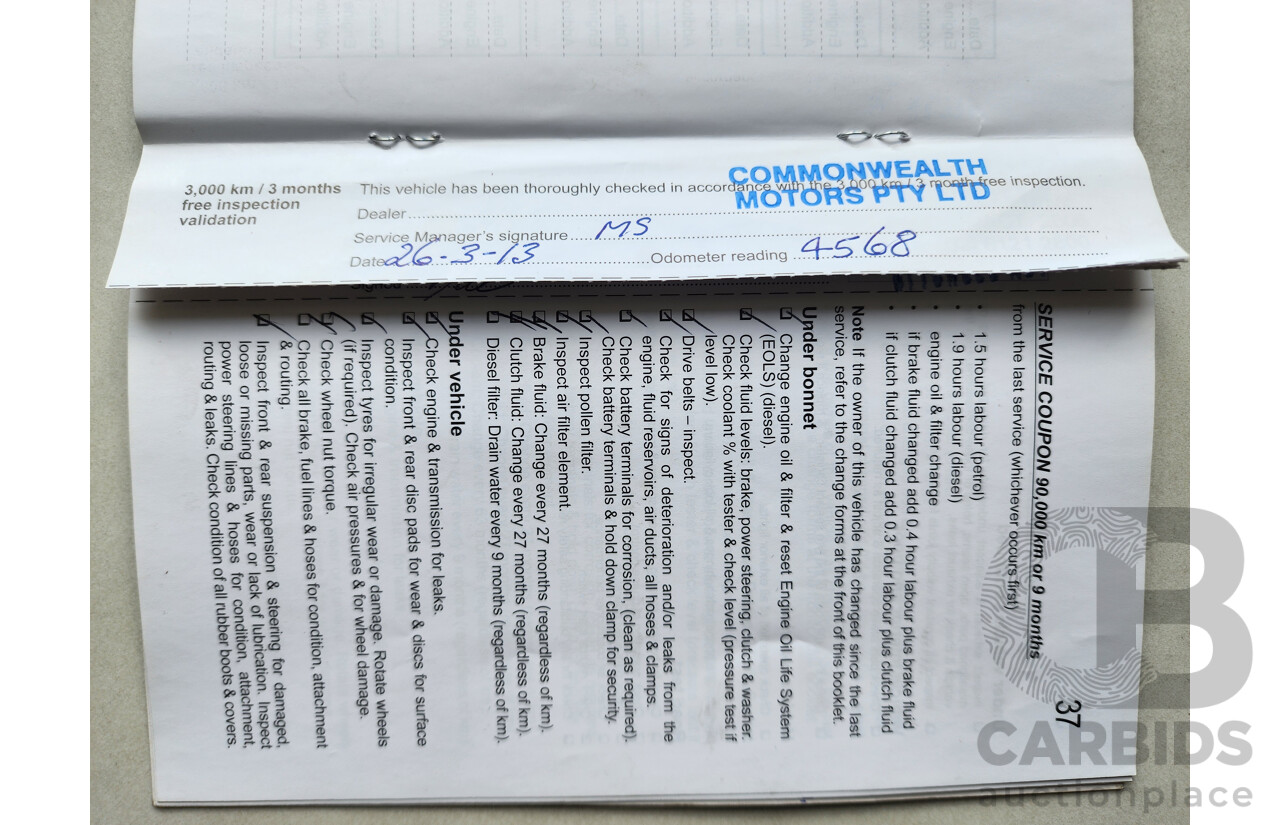 3,000 km / 3 months
free inspection
validation
This vehicle has been thoroughly checked in accordance with the 3,000 km / 3 month free inspection.
COMMONWEALTH
MOTORS PTY LTD
Dealer
Service Manager's signature MS
Date 26-3-13 Odometer reading 4568
37
SERVICE COUPON 90,000 km or 9 months
from the last service (whichever occurs first)
• 1.5 hours labour (petrol)
• 1.9 hours labour (diesel)
• engine oil & filter change
• if brake fluid changed add 0.4 hour labour plus brake fluid
• if clutch fluid changed add 0.3 hour labour plus clutch fluid
Note If the owner of this vehicle has changed since the last
service, refer to the change forms at the front of this booklet.
Under bonnet
Change engine oil & filter & reset Engine Oil Life System
(EOLS) (diesel).
Check fluid levels: brake, power steering, clutch & washer.
Check coolant % with tester & check level (pressure test if
level low).
Drive belts – inspect.
Check for signs of deterioration and/or leaks from the
engine, fluid reservoirs, air ducts, all hoses & clamps.
Check battery terminals for corrosion, (clean as required).
Check battery terminals & hold down clamp for security.
Inspect pollen filter.
Inspect air filter element.
Brake fluid: Change every 27 months (regardless of km).
Clutch fluid: Change every 27 months (regardless of km).
Diesel filter: Drain water every 9 months (regardless of km).
Under vehicle
Check engine & transmission for leaks.
Inspect front & rear disc pads for wear & discs for surface
condition.
Inspect tyres for irregular wear or damage. Rotate wheels
(if required). Check air pressures & for wheel damage.
Check wheel nut torque.
Check all brake, fuel lines & hoses for condition, attachment
& routing.
Inspect front & rear suspension & steering for damaged,
loose or missing parts, wear or lack of lubrication. Inspect
power steering lines & hoses for condition, attachment,
routing & leaks. Check condition of all rubber boots & covers.
CARBIDS
auctionplace